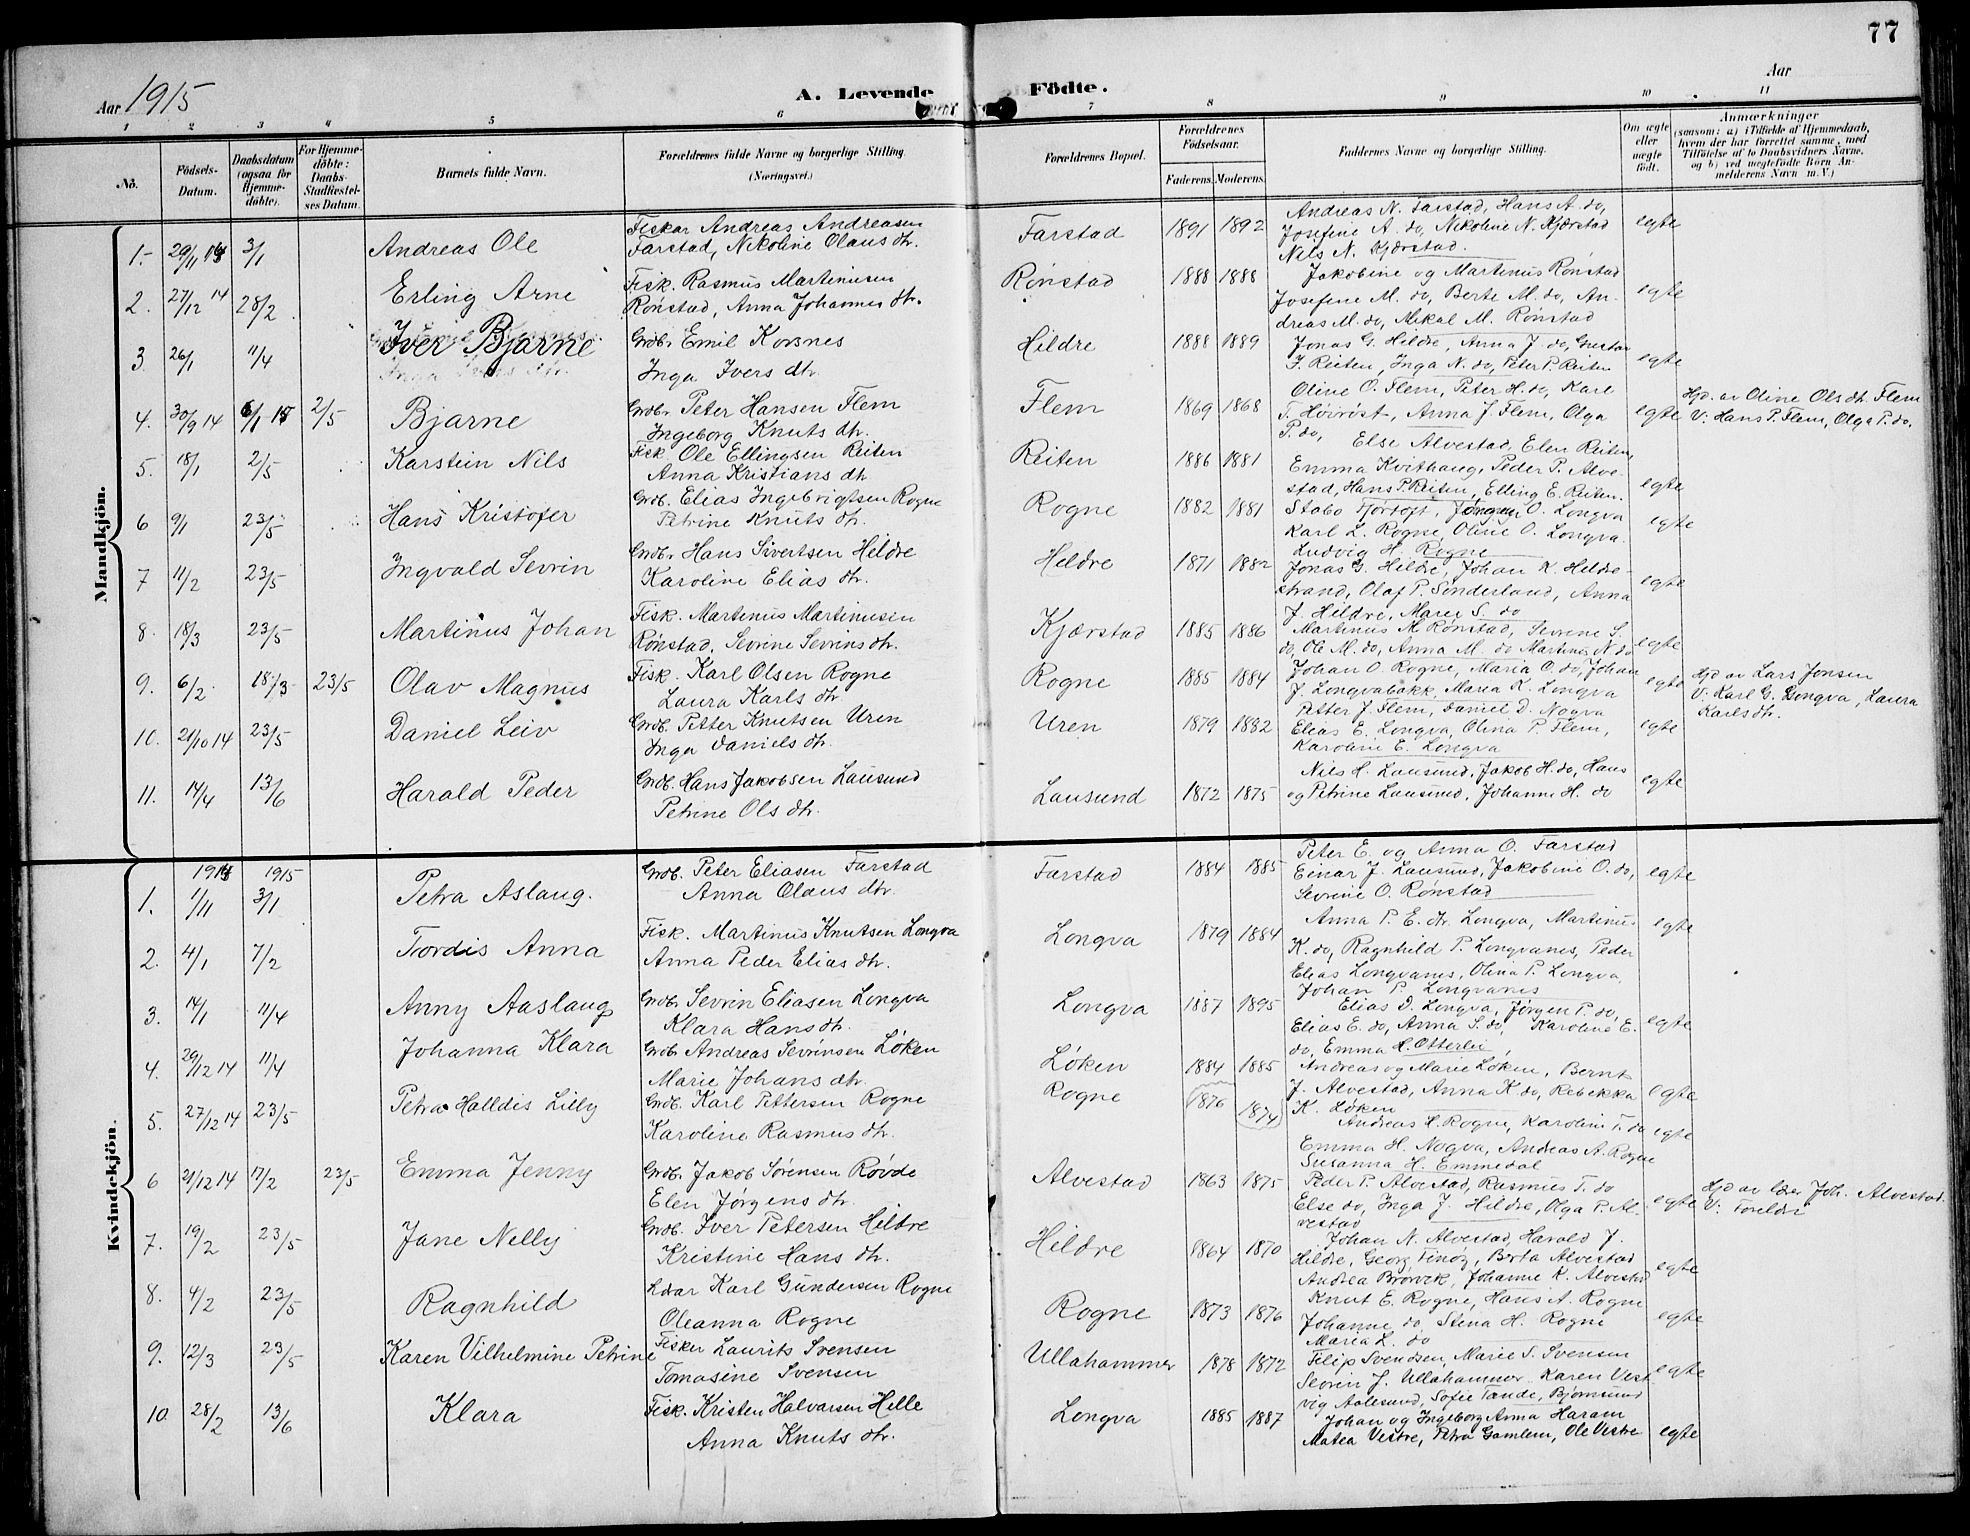 77
Aar 1915
A. Levende Födte.
Aar
1 2 3 4 5 6 7 8 9 10 11
No.
Födsels-Datum.
Daabsdatum (ogsaa for Hjemme-döbte).
For Hjemme-döbte: Daabs-Stadfæstel-ses Datum.
Barnets fulde Navn.
Forældrenes fulde Navne og borgerlige Stilling. (Næringsvei.)
Forældrenes Bopæl.
Forældrenes Födselsaar.
Faderens. Moderens.
Faddernes Navne og borgerlige Stilling.
Om ægte eller uægte födt.
Anmærkninger (saasom: a) i Tilfælde af Hjemmedaab, hvem der har forrettet samme, med Tilföielse af to Daabsvidners Navne, og b) ved uægtefödte Börn An-melderens Navn m. V.)
Mandkjön.
1. 29/11 14 3/1 Andreas Ole
Fisker Andreas Andreasen
Farstad, Nikoline Olaus dtr.
Farstad 1891 1892
Andreas N. Farstad, Hans A. do,
Josefine A. do, Nikoline N. Kjærstad
Nils N. Kjærstad.
egte
2. 27/12 14 28/2 Erling Arne
Fisk. Rasmus Martinusen
Rønstad, Anna Johannes dtr.
Rønstad 1888 1888
Jakobine og Martinus Rønstad
Josefine M. do, Berte M. do, An-
dreas M. do, Mikal M. Rønstad
egte
3. 26/1 11/4 Iver Bjarne
Grdb. Emil Korsnes
Inga Ivers dtr.
Hildre 1888 1889
Jonas G. Hildre, Anna J. do, Gustav
J. Reiten, Inga N. do, Peter P. Reiten
egte
4. 30/9 14 6/1 15 2/5 Bjarne
Grdbr. Peter Hansen Flem
Ingeborg Knuts dtr.
Flem 1869 1868
Oline O. Flem, Peter H. do, Karl
T. Hoirøst, Anna J. Flem, Olga
P. do,
egte
Hjd. av Oline Ols dtr. Flem
V: Hans P. Flem, Olga P. do.
5. 18/1 2/5 Karstein Nils
Fisk. Ole Ellingsen Reiten
Anna Kristians dtr.
Reiten 1886 1881
Else Alvestad, Elen Reiten,
Emma Kvithaug, Peder P. Alve-
stad, Hans P. Reiten, Elling E. Reiten.
egte
6 9/1 23/5 Hans Kristofer
Grdb. Elias Ingebrigtsen Rogne
Petrine Knuts dtr.
Rogne 1882 1881
Stabo Fjørtoft, Jørgen O. Longva
Karl L. Rogne, Oline O. Longva.
Ludvig H. Rogne
egte
7 11/2 23/5 Ingvald Sevrin
Grdb. Hans Sivertsen Hildre
Karoline Elias dtr.
Hildre 1871 1882
Jonas G. Hildre, Johan K. Hildre-
strand, Olaf P. Sønderland, Anna
J. Hildre, Marie S. do
egte
8. 18/3 23/5 Martinus Johan
Fisk. Martinus Martinusen
Rønstad, Sevrine Sevrins dtr.
Kjærstad 1885 1886
Martinus M Rønstad, Sevrine S.
do, Ole M. do, Anna M. do Martinus N. do
egte
9. 6/2 18/3 23/5 Olav Magnus
Fisk. Karl Olsen Rogne
Laura Karls dtr.
Rogne 1885 1884
Johan O Rogne, Maria O. do, Johan
J. Longvabakk, Maria K. Longva
egte
Hjd av Lars Jonsen
V: Karl G. Longva, Laura
Karls dtr.
10. 21/10 14 23/5 Daniel Leiv
Grdb. Petter Knutsen Uren
Inga Daniels dtr.
Uren 1879 1882
Petter J. Flem, Daniel D. Nogva
Elias E. Longva, Olina P. Flem,
Karoline E. Longva
egte
11. 14/4 13/6 Harald Peder
Grdb. Hans Jakobsen Lausund
Petrine Ols dtr.
Lausund 1872 1875
Nils H. Lausund, Jakob H. do, Hans
og Petrine Lausund, Johanne H. do
egte
Kvindekjön.
1914 1915
1. 1/11 3/1 Petra Aslaug.
Grdb. Peter Eliasen Farstad
Anna Olaus dtr.
Farstad 1884 1885
Peter E. og Anna O. Farstad
Einar J. Lausund, Jakobine O. do,
Sevrine O. Rønstad
egte
2. 4/1 7/2 Tordis Anna
Fisk. Martinus Knutsen Longva
Anna Peder Elias dtr.
Longva 1879 1884
Anna P. E. dtr. Longva, Martinus
K. do, Ragnhild P. Longvanes, Peder
Elias Longvanes, Olina P. Longva,
Johan P. Longvanes
egte
3. 14/1 11/4 Anny Aaslaug
Grdb. Sevrin Eliasen Longva
Klara Hans dtr.
Longva 1887 1895
Elias D. Longva, Jørgen P. do,
Elias E. do, Anna S. do, Karoline E.
do, Emma H. Otterlei
egte
4. 29/12 14 11/4 Johanna Klara
Grdb Andreas Sevrinsen Løken
Marie Johans dtr.
Løken 1884 1885
Andreas og Marie Løken, Bernt
J. Alvestad, Anna K. do, Rebekka
K. Løken
egte
5. 27/12 14 23/5 Petra Halldis Lilly
Grdb. Karl Pettersen Rogne
Karoline Rasmus dtr.
Rogne 1876 1874
Andreas H. Rogne, Karoline T. do
Emma H. Nogva, Andreas A. Rogne
Susanna H. Emmedal
egte
6 21/12 14 17/2 23/5 Emma Jenny
Grdb. Jakob Sørensen Røvde
Elen Jørgens dtr.
Alvestad 1863 1875
Peder P. Alvestad, Rasmus T. do
Else do, Inga J. Hildre, Olga P. Al-
vestad
egte
Hjd av Joh. Alvestad.
V: Foreldr
7. 19/2 23/5 Jane Nelly
Grdb. Iver Petersen Hildre
Kristine Hans dtr.
Hildre 1864 1870
Johan N. Alvestad, Harald J.
Hildre, Georg Finøy, Berta Alvestad
Andrea Brørvik, Johanne K. Alvestad
egte
8. 4/2 23/5 Ragnhild
Lærar Karl Gundersen Rogne
Oleanna Rogne
Rogne 1873 1876
Knut E. Rogne, Hans A. Rogne
Johanne do, Stena H. Rogne
Maria L. do
egte
9. 12/3 23/5 Karen Vilhelmine Petrine
Fisker Laurits Svensen
Tomasine Svensen
Ullahammer 1878 1872
Filip Svendsen, Marie S. Svensen
Sevrin J. Ullahammer Karen Vest-
vig Aalesund, Sofie Tande, Bjørnsund
egte
10. 28/2 13/6 Klara
Fisk. Kristen Halvarsen Helle
Anna Knuts dtr.
Longva 1885 1887
Johan og Ingeborg Anna Haram
Matea Vestre, Petra Gamlem, Ole Vestre
egte